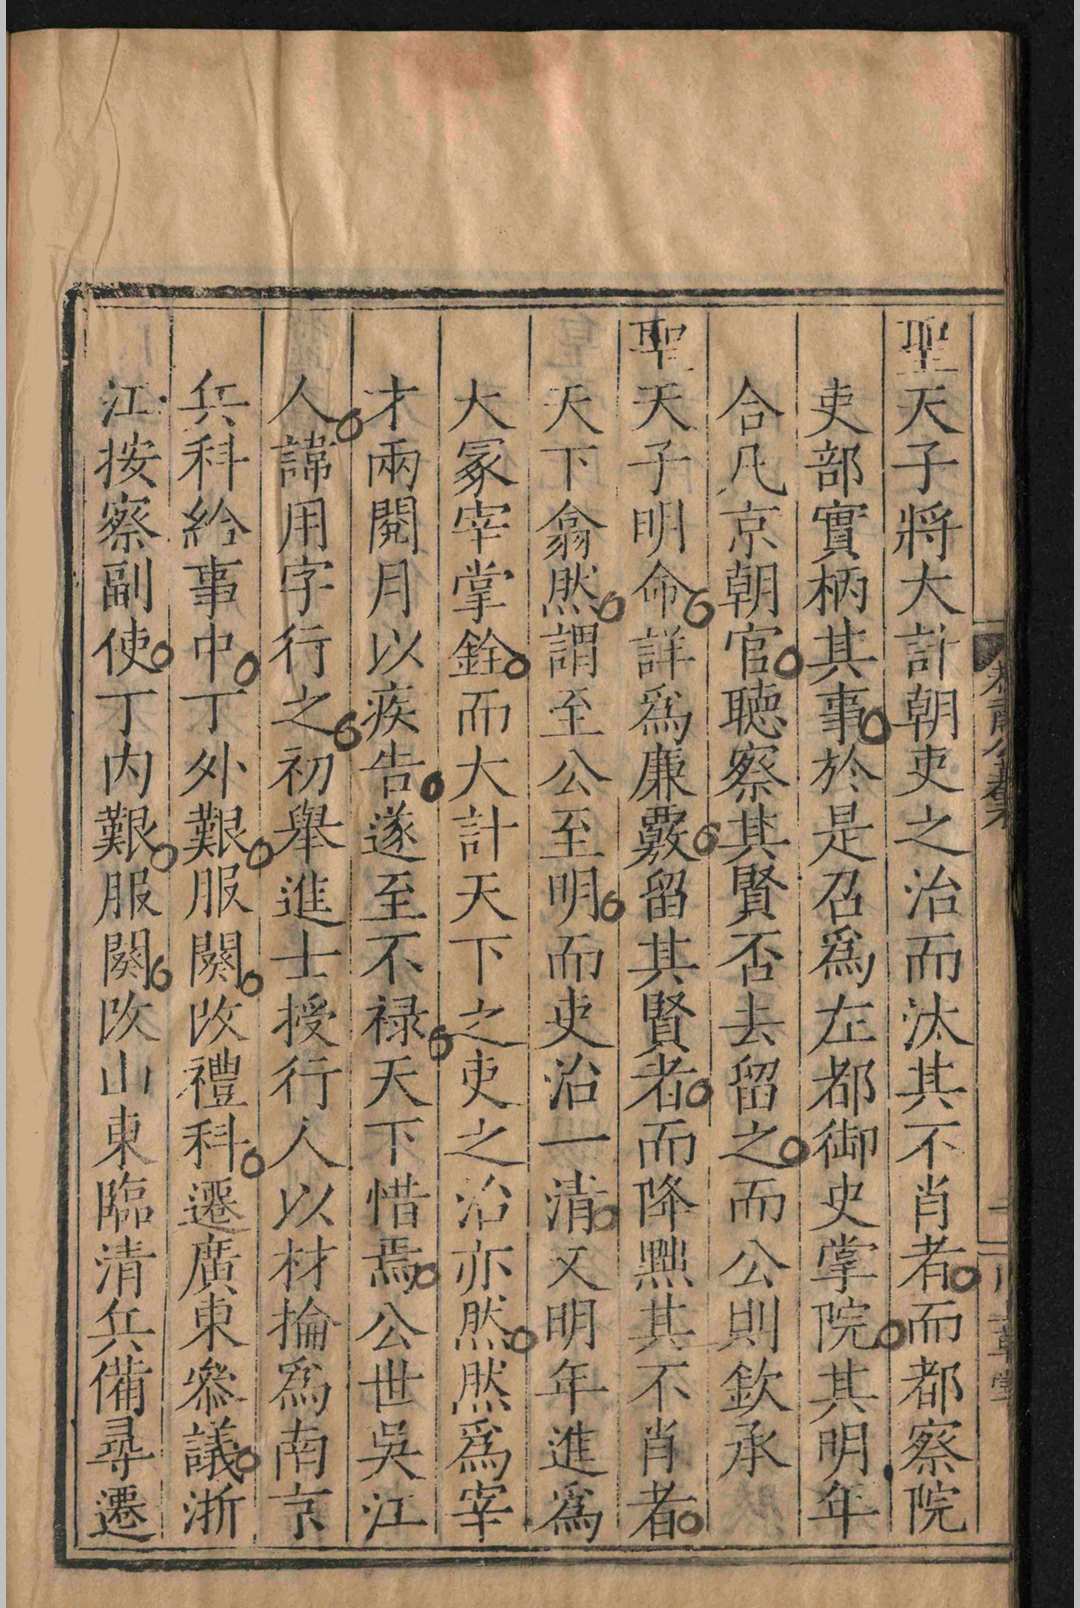 聖天子將大計朝吏之治而汰其不肖者而都察院
吏部實柄其事於是召爲左都御史掌院其明年
合凡京朝官聽察其賢否去留之而公則欽承
聖天子明命詳爲廉覈留其賢者而降黜其不肖者
天下翕然謂至公至明而吏治一清又明年進爲
大冢宰掌銓而大計天下之吏之治亦然然爲宰
才兩閱月以疾告遂至不禄天下惜焉公世吳江
人諱用字行之初舉進士授行人以材掄爲南京
兵科給事中丁外艱服闋改禮科遷廣東叅議浙
江按察副使丁内艱服闋改山東臨清兵備尋遷